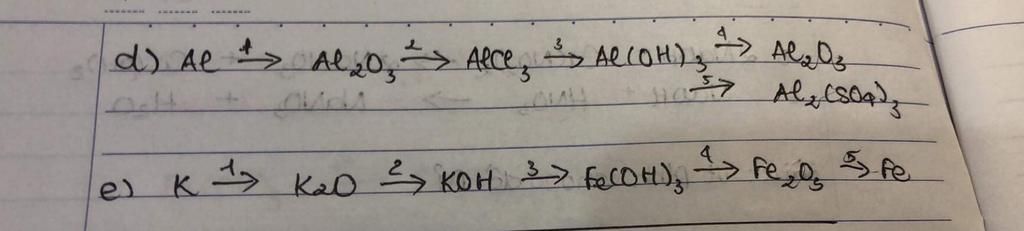 d) Al 1→ Al₂O₃ 2→ AlCl₃ 3→ Al(OH)₃ 4→ Al₂O₃
5→ Al₂(SO₄)₃
e) K 1→ K₂O 2→ KOH 3→ Fe(OH)₃ 4→ Fe₂O₃ 5→ Fe